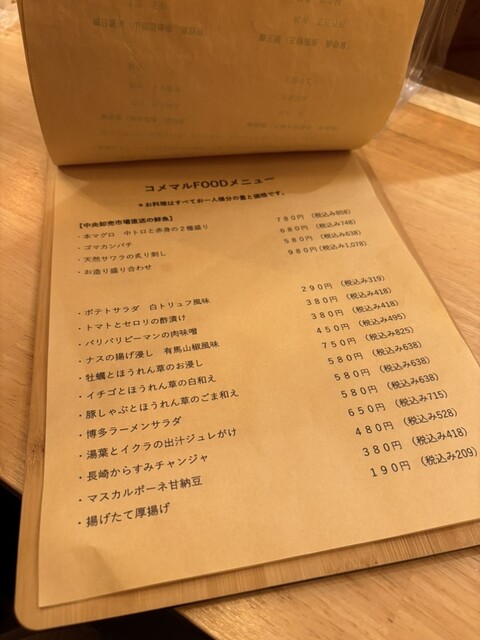 コメマルFOODメニュー
＊お料理はすべてお一人様分の量と価格です。
【中央卸売市場直送の鮮魚】
・本マグロ 中トロと赤身の２種盛り 780円 (税込み858)
・ゴマカンパチ 680円 (税込み748)
・天然サワラの炙り刺し 580円 (税込み638)
・お造り盛り合わせ 980円 (税込み1,078)
・ポテトサラダ 白トリュフ風味 290円 (税込み319)
・トマトとセロリの酢漬け 380円 (税込み418)
・パリパリピーマンの肉味噌 380円 (税込み418)
・ナスの揚げ浸し 有馬山椒風味 450円 (税込み495)
・牡蠣とほうれん草のお浸し 750円 (税込み825)
・イチゴとほうれん草の白和え 580円 (税込み638)
・豚しゃぶとほうれん草のごま和え 580円 (税込み638)
・博多ラーメンサラダ 580円 (税込み638)
・湯葉とイクラの出汁ジュレがけ 650円 (税込み715)
・長崎からすみチャンジャ 480円 (税込み528)
・マスカルポーネ甘納豆 380円 (税込み418)
・揚げたて厚揚げ 190円 (税込み209)